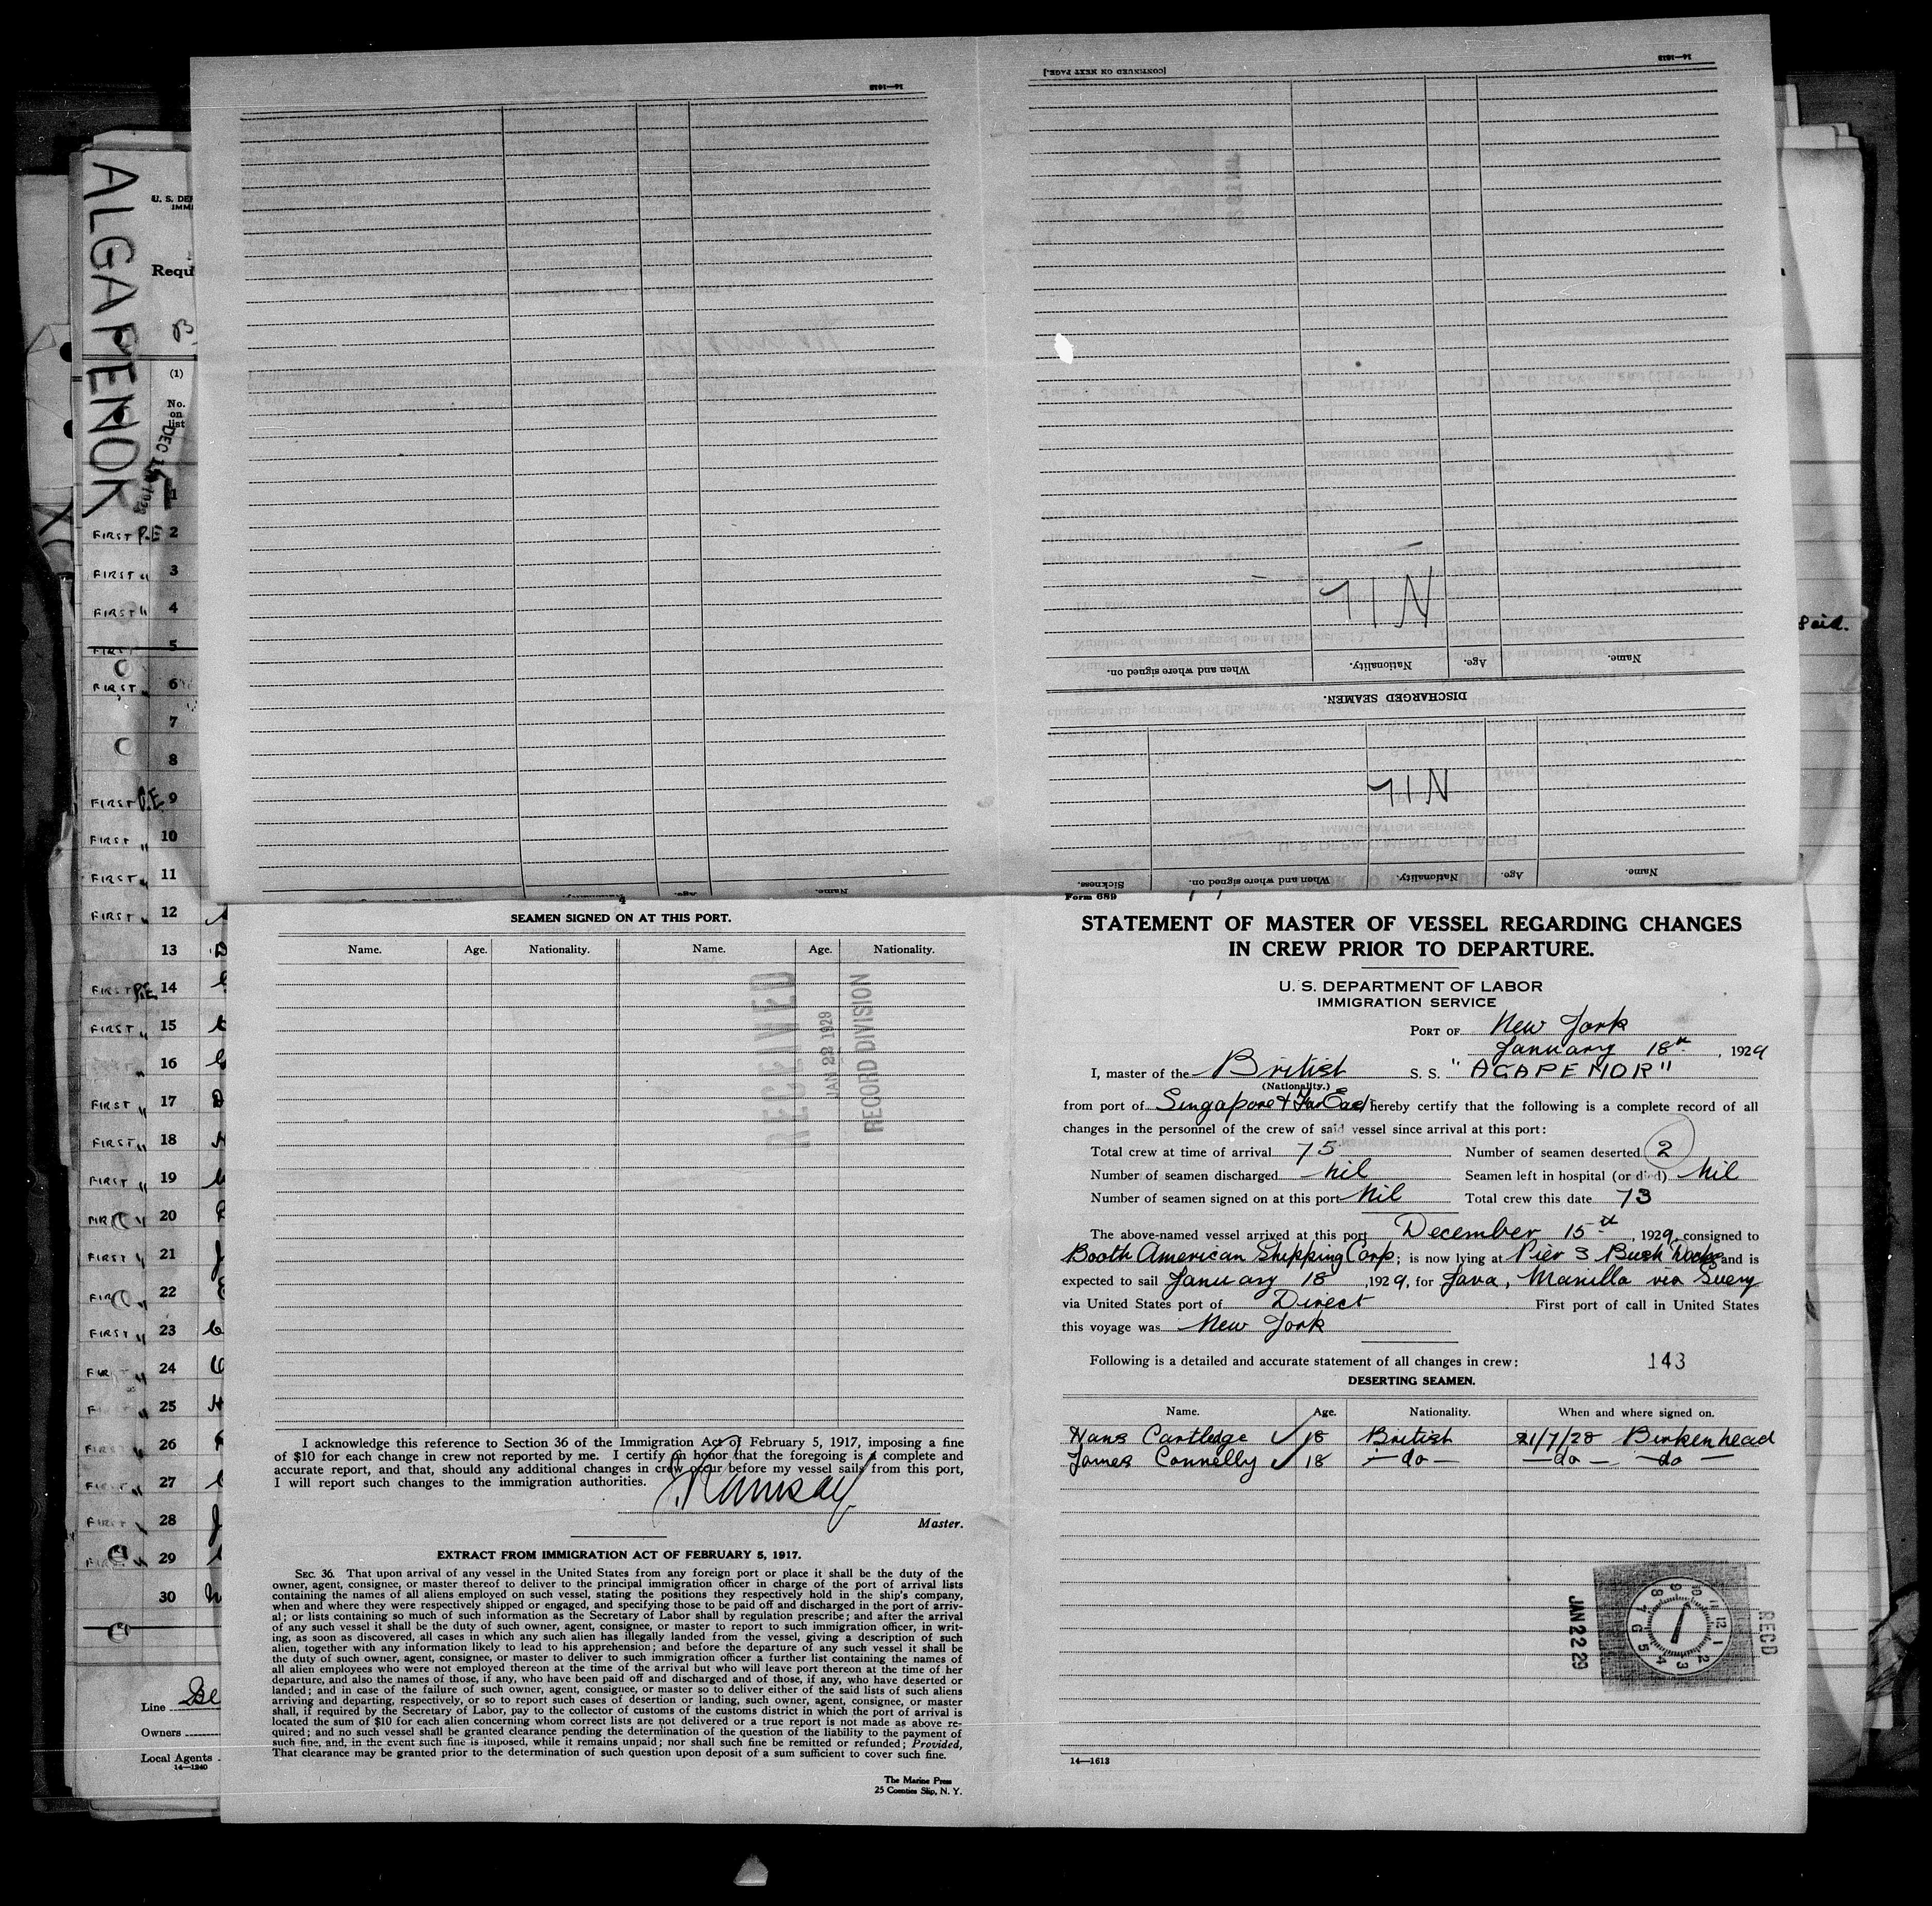 ALGAPENOR
U. S. DE
IMMI
Requ
(1)
No.
on
list
1
FIRST P.E. 2
FIRST " 3
FIRST " 4
FIRST 5
FIRST " 6
7
8
FIRST P.E. 9
FIRST " 10
FIRST " 11
FIRST " 12
13
FIRST P.E. 14
FIRST " 15
" 16
FIRST " 17
FIRST " 18
FIRST " 19
20
FIRST " 21
22
FIRST " 23
24
25
FIRST " 26
FIRST " 27
FIRST 28
29
30
Line
Owners
Local Agents
14—1240
Said.
14—1613
[CONTINUED ON NEXT PAGE.]
14—1613
NIL
Name.
Age.
Nationality.
When and where signed on.
DISCHARGED SEAMEN.
NIL
Name.
Age.
Nationality.
When and where signed on.
Sickness.
4
SEAMEN SIGNED ON AT THIS PORT.
Name. Age. Nationality. Name. Age. Nationality.
RECEIVED
JAN 22 1929
RECORD DIVISION
I acknowledge this reference to Section 36 of the Immigration Act of February 5, 1917, imposing a fine
of $10 for each change in crew not reported by me. I certify on honor that the foregoing is a complete and
accurate report, and that, should any additional changes in crew occur before my vessel sails from this port,
I will report such changes to the immigration authorities.
Ramsay
Master.
EXTRACT FROM IMMIGRATION ACT OF FEBRUARY 5, 1917.
SEC. 36. That upon arrival of any vessel in the United States from any foreign port or place it shall be the duty of the
owner, agent, consignee, or master thereof to deliver to the principal immigration officer in charge of the port of arrival lists
containing the names of all aliens employed on such vessel, stating the positions they respectively hold in the ship's company,
when and where they were respectively shipped or engaged, and specifying those to be paid off and discharged in the port of arriv-
al; or lists containing so much of such information as the Secretary of Labor shall by regulation prescribe; and after the arrival
of any such vessel it shall be the duty of such owner, agent, consignee, or master to report to such immigration officer, in writ-
ing, as soon as discovered, all cases in which any such alien has illegally landed from the vessel, giving a description of such
alien, together with any information likely to lead to his apprehension; and before the departure of any such vessel it shall be
the duty of such owner, agent, consignee, or master to deliver to such immigration officer a further list containing the names of
all alien employees who were not employed thereon at the time of the arrival but who will leave port thereon at the time of her
departure, and also the names of those, if any, who have been paid off and discharged and of those, if any, who have deserted or
landed; and in case of the failure of such owner, agent, consignee, or master so to deliver either of the said lists of such aliens
arriving and departing, respectively, or so to report such cases of desertion or landing, such owner, agent, consignee, or master
shall, if required by the Secretary of Labor, pay to the collector of customs of the customs district in which the port of arrival is
located the sum of $10 for each alien concerning whom correct lists are not delivered or a true report is not made as above re-
quired; and no such vessel shall be granted clearance pending the determination of the question of the liability to the payment of
such fine, and, in the event such fine is imposed, while it remains unpaid; nor shall such fine be remitted or refunded; Provided,
That clearance may be granted prior to the determination of such question upon deposit of a sum sufficient to cover such fine.
The Marine Press
25 Coenties Slip, N. Y.
Form 689
STATEMENT OF MASTER OF VESSEL REGARDING CHANGES
IN CREW PRIOR TO DEPARTURE.
U. S. DEPARTMENT OF LABOR
IMMIGRATION SERVICE
PORT OF New York
January 18th, 1929
I, master of the British S. S. "AGAPENOR"
(Nationality.)
from port of Singapore & Far East hereby certify that the following is a complete record of all
changes in the personnel of the crew of said vessel since arrival at this port:
Total crew at time of arrival 75 Number of seamen deserted 2
Number of seamen discharged Nil Seamen left in hospital (or died) Nil
Number of seamen signed on at this port Nil Total crew this date 73
The above-named vessel arrived at this port December 15th, 1929, consigned to
Booth American Shipping Corp; is now lying at Pier 3 Bush Docks and is
expected to sail January 18, 1929, for Java, Manilla via Suez
via United States port of Direct First port of call in United States
this voyage was New York
Following is a detailed and accurate statement of all changes in crew: 143
DESERTING SEAMEN.
Name. Age. Nationality. When and where signed on.
Hans Cartledge 18 British 21/7/28 Birkenhead
James Connelly 18 — do — — do — — do —
JAN 22 29
RECD
12 1 2 3 4 5 6 7 8 9 10 11
14—1613